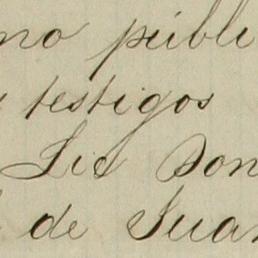 no públi
testigos
Lic Don
de Juan